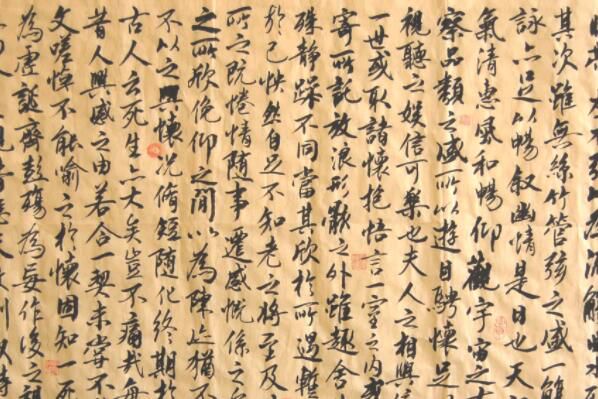 其次雖無絲竹管弦之盛一觴
詠亦足以暢敘幽情是日也天
氣清惠風和暢仰觀宇宙之大
察品類之盛所以遊目騁懷足
視聽之娛信可樂也夫人之相與
一世或取諸懷抱悟言一室之內
寄所託放浪形骸之外雖趣舍
殊靜躁不同當其欣於所遇暫
於己快然自足不知老之將至及
所之既倦情隨事遷感慨係之
之所欣俛仰之間以為陳迹猶不
不以之興懷況脩短隨化終期於
古人云死生亦大矣豈不痛哉每
昔人興感之由若合一契未嘗不
文嗟悼不能喻之於懷固知一死
為虛誕齊彭殤為妄作後之視